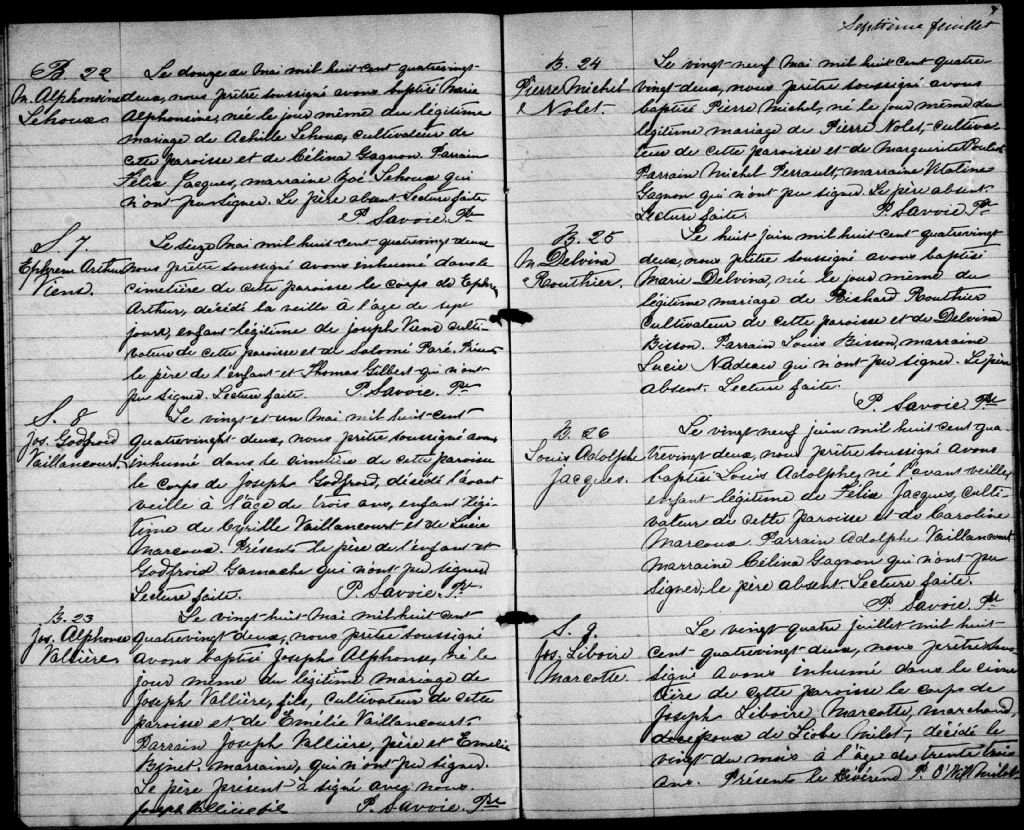 B. 22
M. Alphonsine
Lehoux
Le douze de Mai mil huit cent quatrevingt-
deux, nous prêtre soussigné avons baptisé Marie
Alphonsine, née le jour même du légitime
mariage de Achille Lehoux, cultivateur de
cette paroisse et de Célina Gagnon. Parrain
Félix Jacques, marraine Zoé Lehoux qui
n'ont pu signer. Le père absent. Lecture faite.
P. Savoie. Ptr
S. 7.
Ephrem Arthur
Viens.
Le seize Mai mil huit-cent quatrevingt deux
nous prêtre soussigné avons inhumé dans le
cimetière de cette paroisse le corps de Ephrem
Arthur, décédé la veille à l'âge de sept
jours, enfant légitime de Joseph Viens culti-
vateur de cette paroisse et de Salomé Paré.
le père de l'enfant et Thomas Gilbert qui n'ont
pu signer. Lecture faite. P. Savoie. Ptr
S. 8
Jos. Godfroid
Vaillancourt.
Le vingt et un Mai mil huit cent
quatrevingt deux, nous prêtre soussigné avons
inhumé dans le cimetière de cette paroisse
le corps de Joseph Godfroid, décédé l'avant
veille à l'âge de trois ans, enfant légi-
time de Cyrille Vaillancourt et de Lucie
Marcoux. Présents le père de l'enfant et
Godfroid Gamache qui n'ont pu signer
Lecture faite. P. Savoie. Ptr
B. 23
Jos. Alphonse
Vallière
Le vingt huit Mai mil huit cent
quatrevingt deux, nous prêtre soussigné
avons baptisé Joseph Alphonse, né le
jour même de légitime mariage de
Joseph Vallière, fils, cultivateur de cette
paroisse et de Emélie Vaillancourt
Parrain Joseph Vallière, père et Emelie
Binet. marraine, qui n'ont pu signer.
Le père présent à signé avec nous.
Joseph Valliere fil P. Savoie. Ptr
Septième feuillet
B. 24
Pierre Michel
Nolet.
Le vingt neuf Mai mil huit cent quatre-
vingt-deux, nous prêtre soussigné avons
baptisé Pierre Michel, né le jour même du
légitime mariage de Pierre Nolet, cultiva-
teur de cette paroisse et de Marguerite Pouliot
Parrain Michel Perrault, marraine Vitaline
Gagnon qui n'ont pu signer. Le père absent.
Lecture faite. P. Savoie. Ptr
B. 25
M. Delvina
Routhier.
Le huit juin mil huit cent quatrevingt
deux, nous prêtre soussigné avons baptisé
Marie Delvina, née le jour même du
légitime mariage de Richard Routhier
cultivateur de cette paroisse et de Delvina
Bisson. Parrain Louis Bisson, marraine
Lucie Nadeau qui n'ont pu signer. Le père
absent. Lecture faite.
P. Savoie. Ptr
B. 26
Louis Adolphe
Jacques.
Le vingt neuf juin mil huit cent qua-
trevingt deux, nous prêtre soussigné avons
baptisé Louis Adolphe, né l'avant veille,
enfant légitime de Félix Jacques, culti-
vateur de cette paroisse et de Caroline
Marcoux. Parrain Adolphe Vaillancourt
Marraine Célina Gagnon qui n'ont pu
signer, le père absent. Lecture faite.
P. Savoie. Ptr
S. 9.
Jos. Liboire
Marcotte.
Le vingt quatre juillet mil huit-
cent quatrevingt deux, nous prêtre sous-
signé avons inhumé dans le cime-
tière de cette paroisse le corps de
Joseph Liboire Marcotte, marchand,
époux de Milot, décédé le
vingt du mois à l'âge de trente trois
ans. Présents le Révérend P. O'Neil Milot